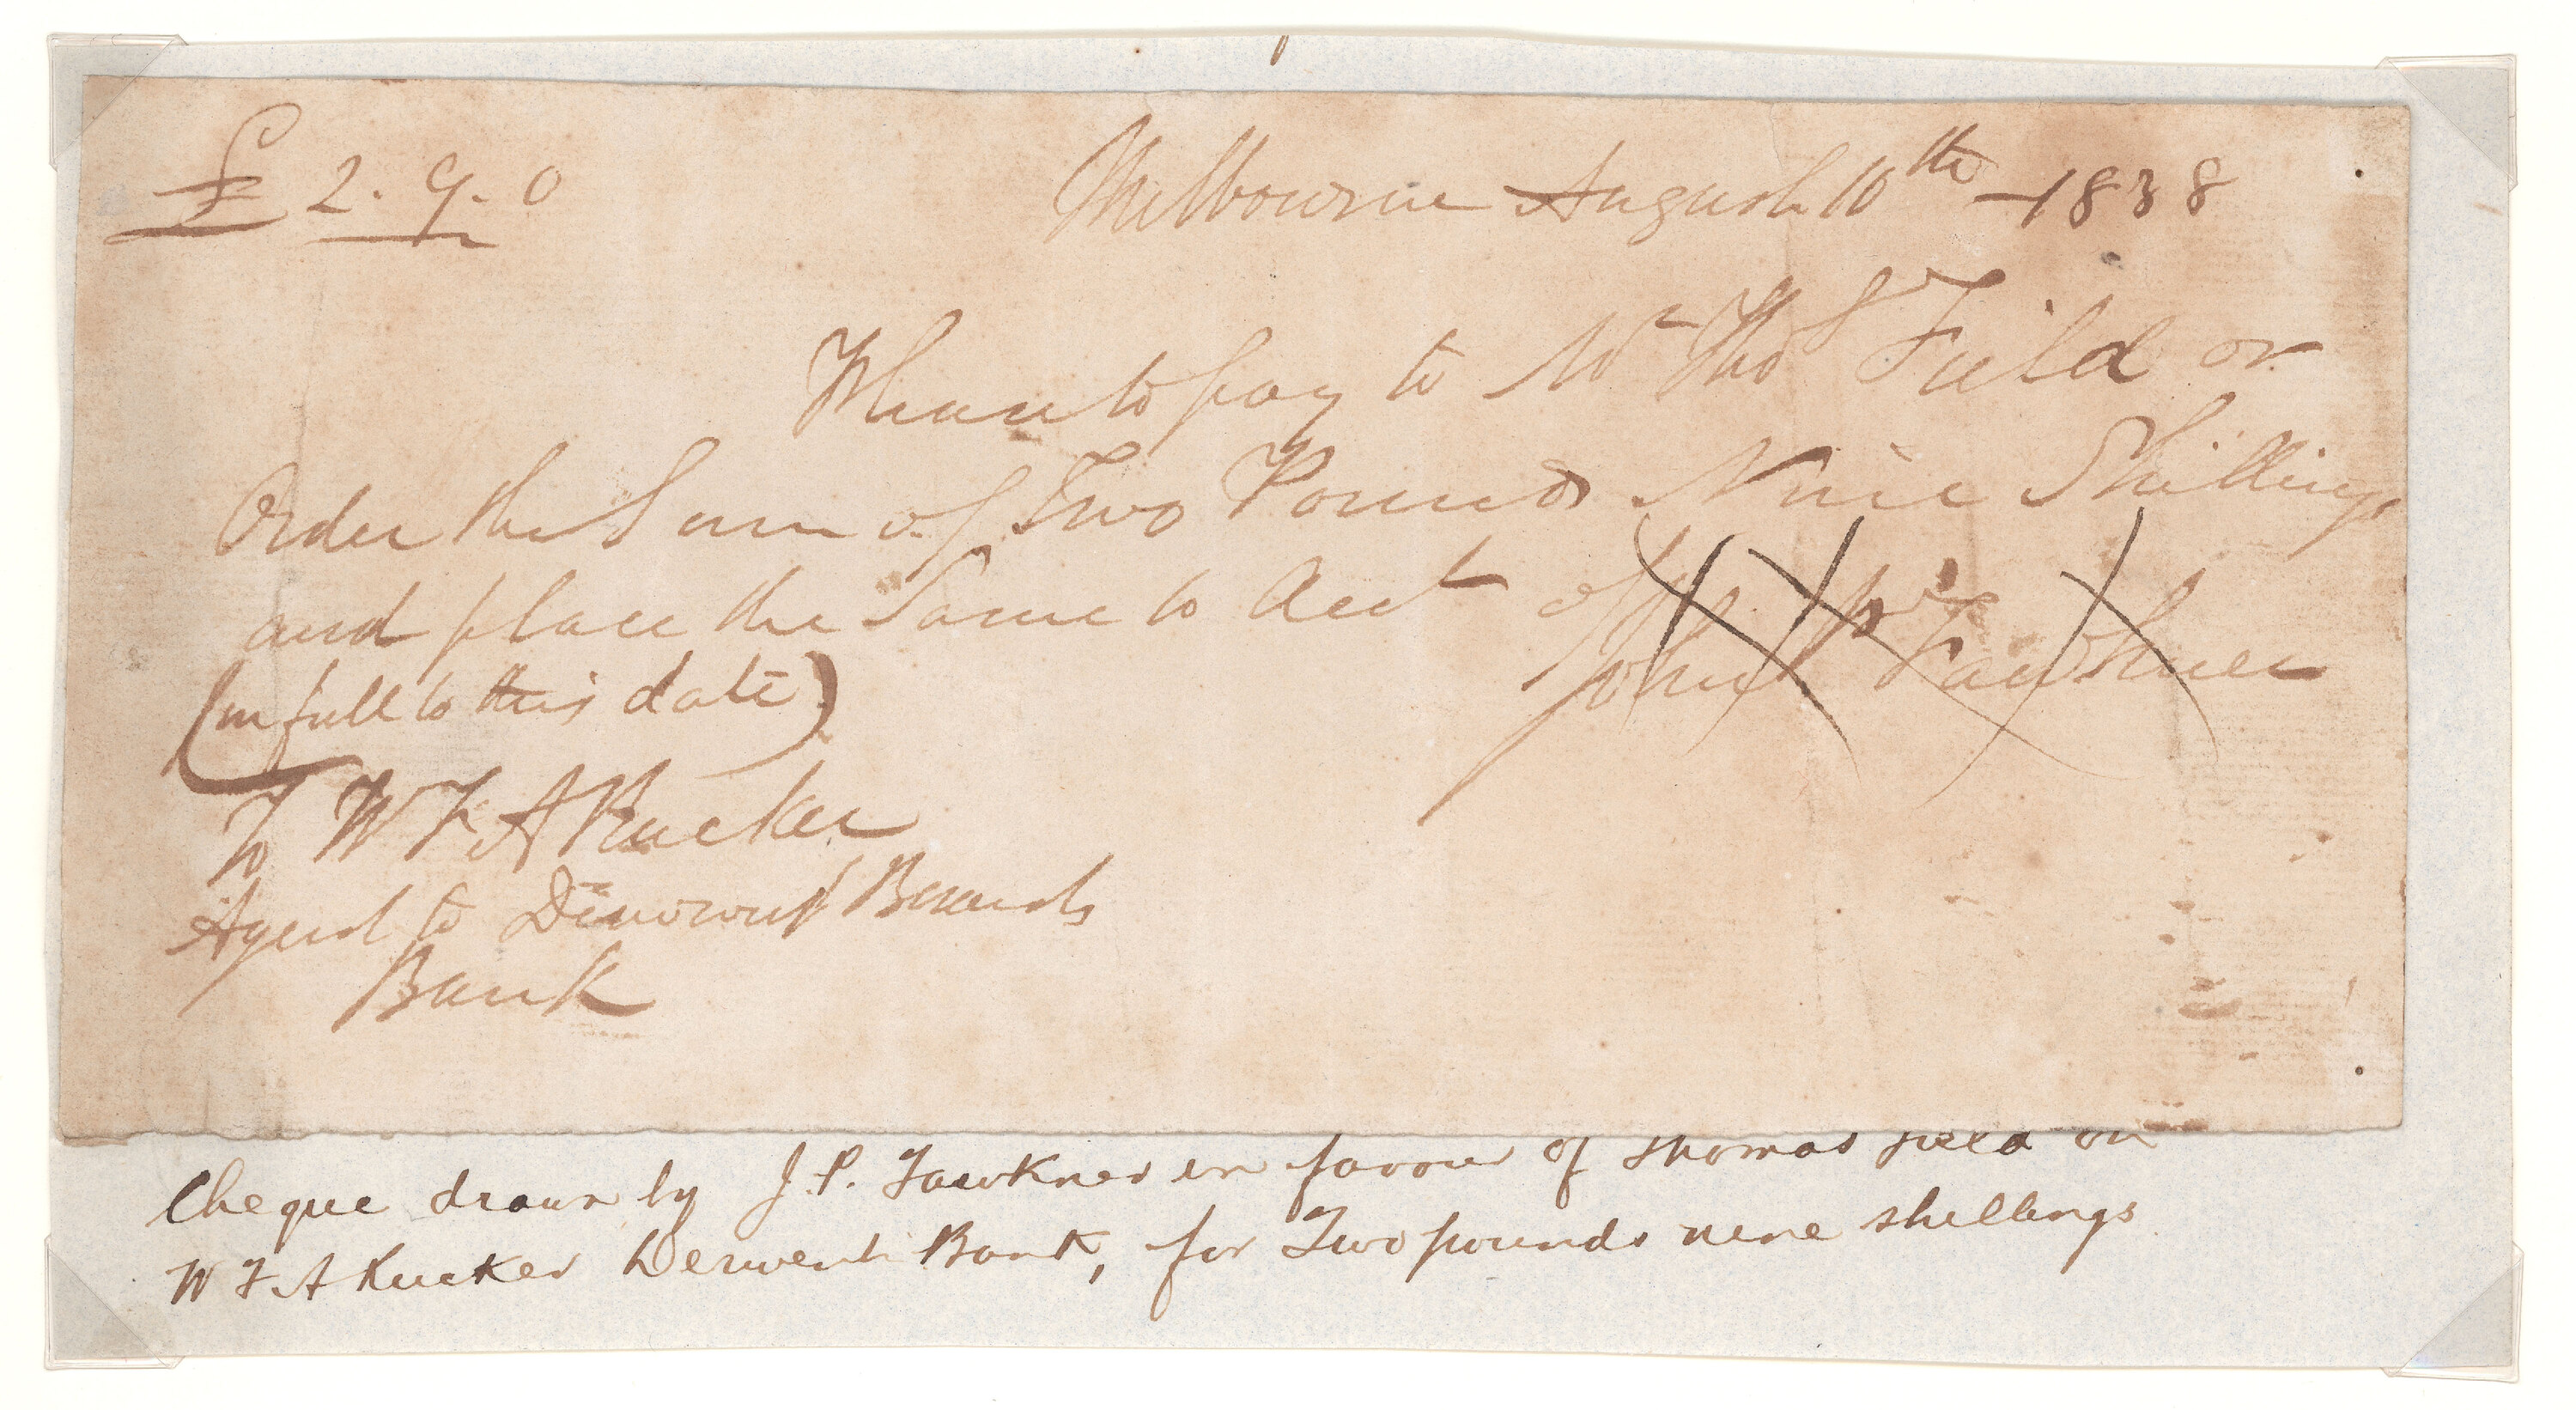 £ 2. 9. 0
Melbourne August 10th - 1838
Please to pay to Mr Thos Field or
Order the Sum of Two Pounds Nine Shillings
and place the Same to Acct of
(in full to this date)
John P Fawkner
To W F A Rucker
Agent to
Bank
Cheque drawn by J. P. Fawkner in favour of Thomas Field on
W F. A Rucker Derwent Bank, for Two pounds nine shillings